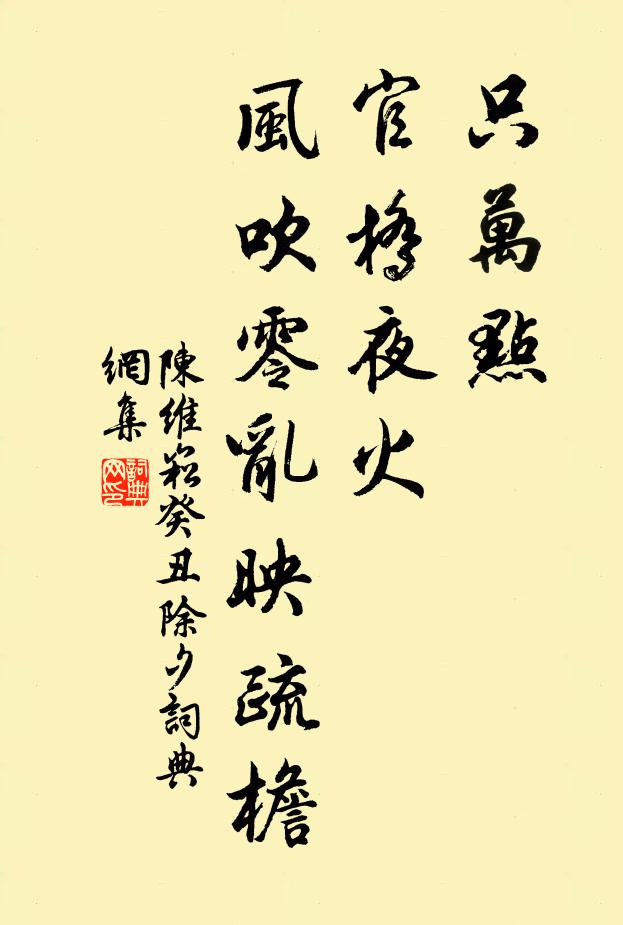 只萬點
官橋夜火
風吹零亂映疏檐
陳維崧癸丑除夕詞典
網集
詞典網印